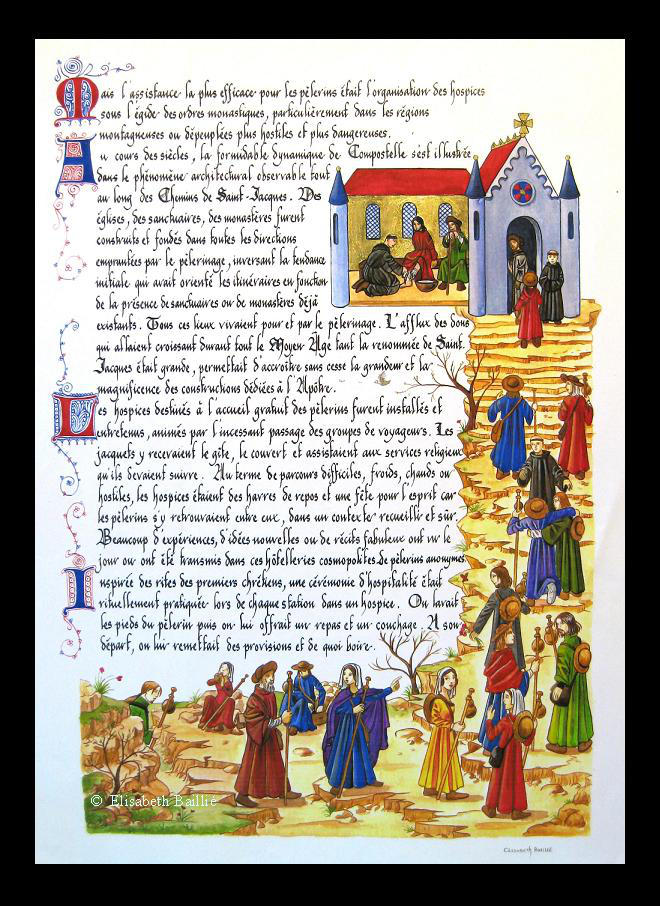 Mais l'assistance la plus efficace pour les pèlerins était l'organisation des hospices
sous l'égide des ordres monastiques, particulièrement dans les régions
montagneuses ou dépeuplées plus hostiles et plus dangereuses.
Au cours des siècles, la formidable dynamique de Compostelle s'est illustrée
dans le phénomène architectural observable tout
au long des Chemins de Saint-Jacques. Des
églises, des sanctuaires, des monastères furent
construits et fondés dans toutes les directions
empruntées par le pèlerinage, inversant la tendance
initiale qui avait orienté les itinéraires en fonction
de la présence de sanctuaires ou de monastères déjà
existants. Tous ces lieux vivaient pour et par le pèlerinage. L'afflux des dons
qui allaient croissant durant tout le Moyen Age tant la renommée de Saint-
Jacques était grande, permettait d'accroître sans cesse la grandeur et la
magnificence des constructions dédiées à l'Apôtre.
Les hospices destinés à l'accueil gratuit des pèlerins furent installés et
entretenus, animés par l'incessant passage des groupes de voyageurs. Les
jacquets y recevaient le gîte, le couvert et assistaient aux services religieux
qu'ils devaient suivre. Au terme de parcours difficiles, froids, chauds ou
hostiles, les hospices étaient des havres de repos et une fête pour l'esprit car
les pèlerins s'y retrouvaient entre eux, dans un contexte recueilli et sûr.
Beaucoup d'expériences, d'idées nouvelles ou de récits fabuleux ont vu le
jour ou ont été transmis dans ces hôtelleries cosmopolites. De pèlerins anonymes
Inspirée des rites des premiers chrétiens, une cérémonie d'hospitalité était
rituellement pratiquée lors de chaque station dans un hospice. On lavait
les pieds du pèlerin puis on lui offrait un repas et un couchage. A son
départ, on lui remettait des provisions et de quoi boire.
© Elisabeth Baillié
Elisabeth Baillié